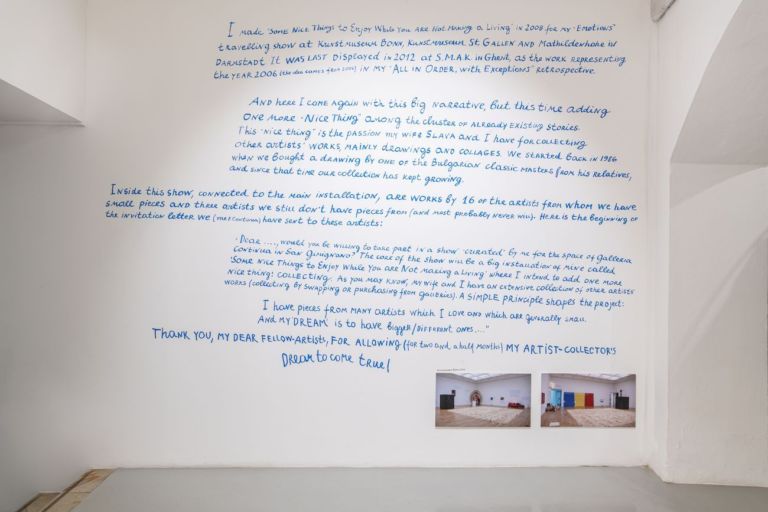 I made 'Some Nice Things to Enjoy While You Are Not Making a Living' in 2008 for my "Emotions"
travelling show at Kunstmuseum Bonn, Kunstmuseum St. Gallen and Mathildenhöhe in
Darmstadt. It was last displayed in 2012 at S.M.A.K. in Ghent, as the work representing
the year 2006 (the idea comes from 2006) in my "All in Order, with Exceptions" retrospective.
And here I come again with this big narrative, but this time adding
one more "Nice Thing" among the cluster of already existing stories.
This "nice thing" is the passion my wife Slava and I have for collecting
other artists' works, mainly drawings and collages. We started back in 1986
when we bought a drawing by one of the Bulgarian classic masters from his relatives,
and since that time our collection has kept growing.
Inside this show, connected to the main installation, are works by 16 of the artists from whom we have
small pieces and three artists we still don't have pieces from (and most probably never will). Here is the beginning of
the invitation letter we (me & Continua) have sent to these artists:
"Dear ...., would you be willing to take part in a show 'curated' by me for the space of Galleria
Continua in San Gimignano? The core of the show will be a big installation of mine called
'Some Nice Things to Enjoy While You are Not making a living' where I intend to add one more
nice thing: collecting. As you may know, my wife and I have an extensive collection of other artists'
works (collecting by swapping or purchasing from galleries). A simple principle shapes the project:
I have pieces from many artists which I love and which are generally small.
And my 'dream' is to have bigger/different ones...."
Thank you, my dear fellow-artists, for allowing (for two and a half months) my artist-collector's
Dream to come true!